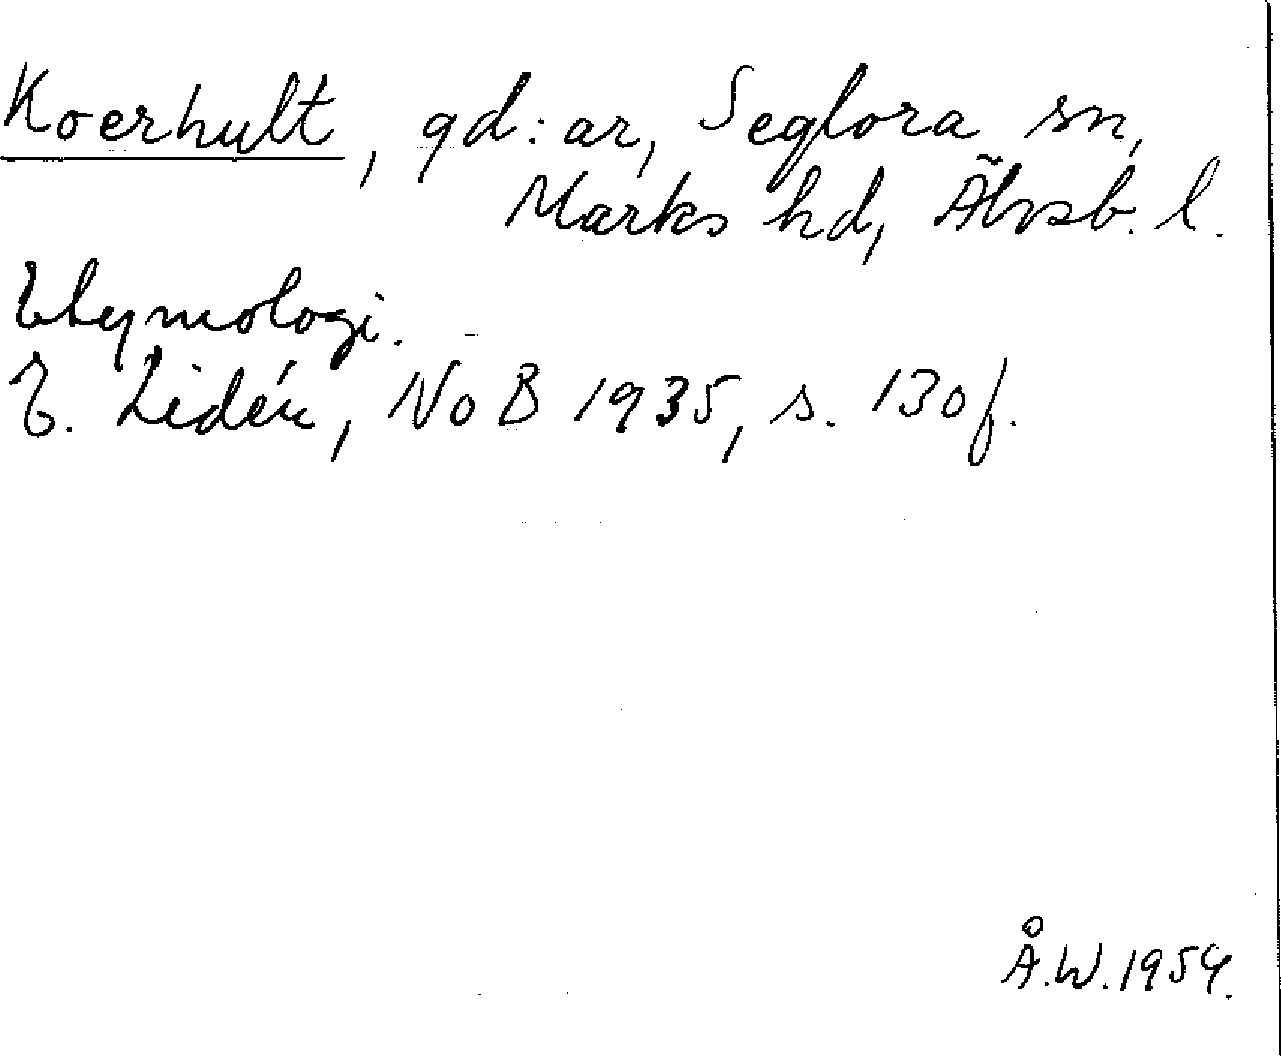 Koerhult, gd:ar, Seglora sn,
Marks hd, Älvsb. l.
Etymologi.
E. Lidén, NoB 1935, s. 130 f.
Å.W. 1954.